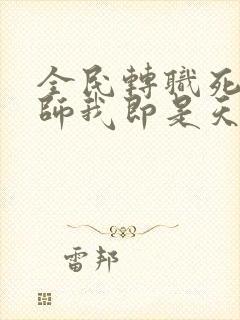 全民轉職死
師我即是天
雷邦